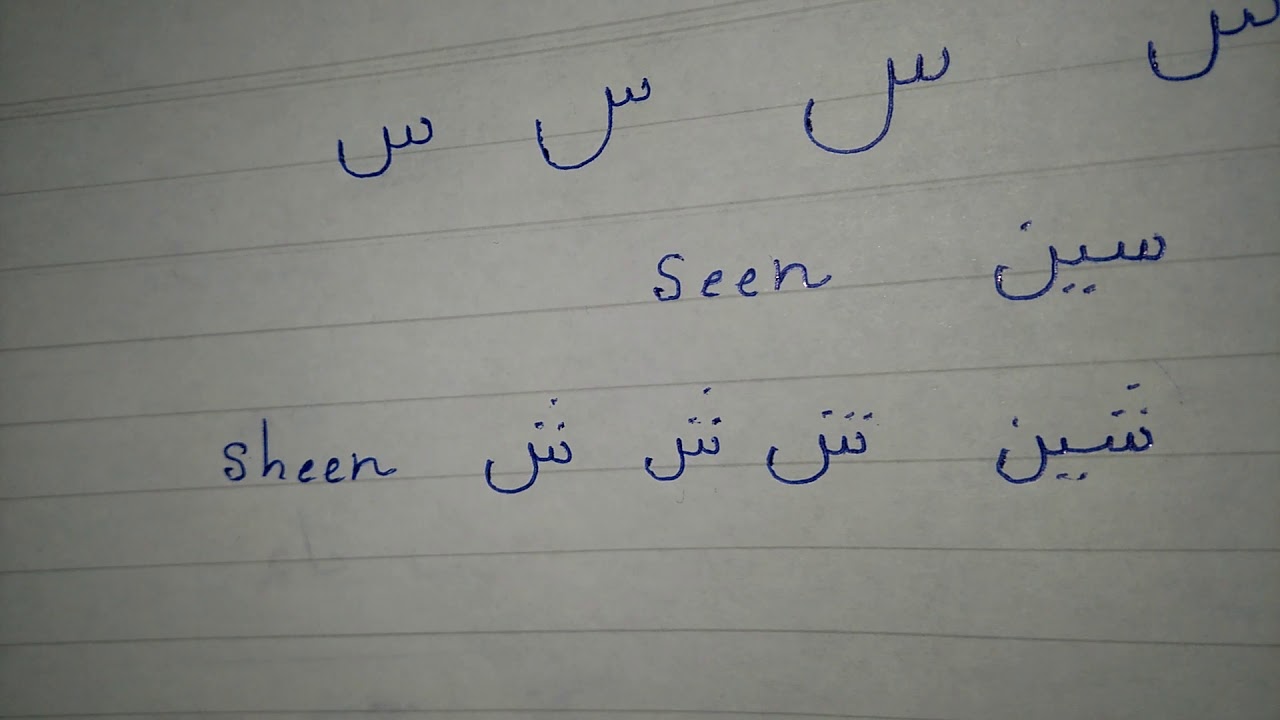 س س س س
سین Seen
شین ش ش ش sheen